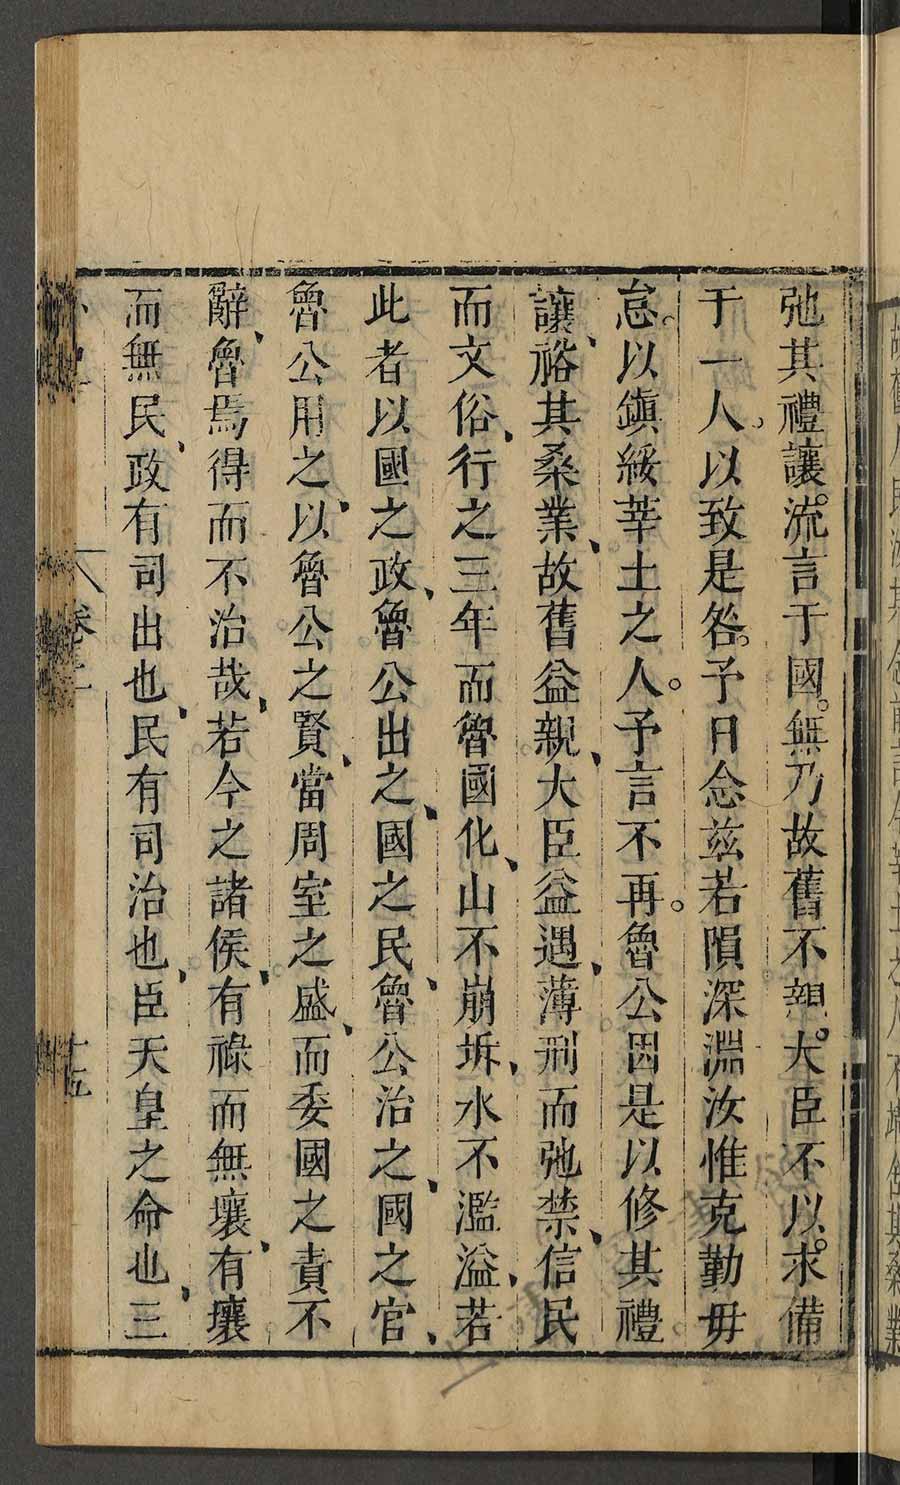 弛其禮讓。流言于國。無乃故舊不親。大臣不以。求備
于一人。以致是咎。予日念兹若隕深淵汝惟克勤毋
怠。以鎮綏莘土之人。予言不再。魯公因是以修其禮
讓、裕其桑業、故舊益親、大臣益遇、薄刑而弛禁、信民
而文俗、行之三年而魯國化、山不崩坼、水不濫溢、若
此者以國之政、魯公出之、國之民、魯公治之、國之官、
魯公用之、以魯公之賢、當周室之盛、而委國之責不
辭、魯焉得而不治哉、若今之諸侯、有祿而無壤、有壤
而無民、政有司出也、民有司治也、臣天皇之命也、三
卷二
十五